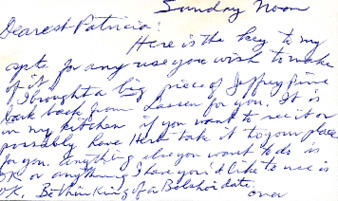 Sunday Noon
Dearest Patricia:
Here is the key to my
apt. for any use you wish to make
of it. I brought a big piece of Jeffrey pine
bark back from Lassen for you. It is
in my kitchen if you want to see it or
possibly have Herb take it to your place
for you. Anything else you want to do is
OK or anything I have you'd like to use is
OK. Be thinking of a Bolshoi date.
over